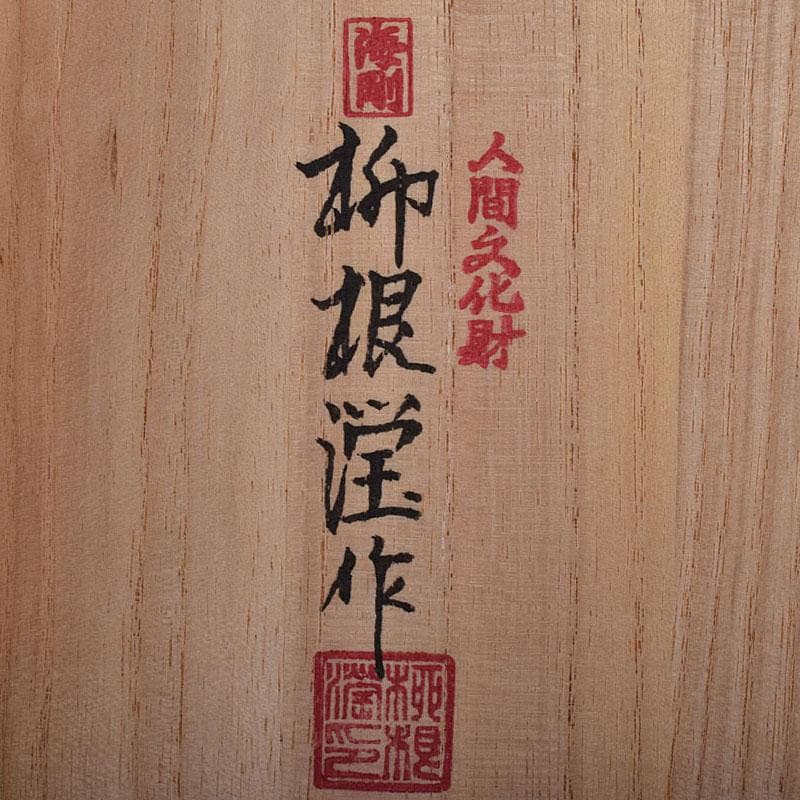 人間文化財
海剛
柳根瀅作
柳根
瀅印